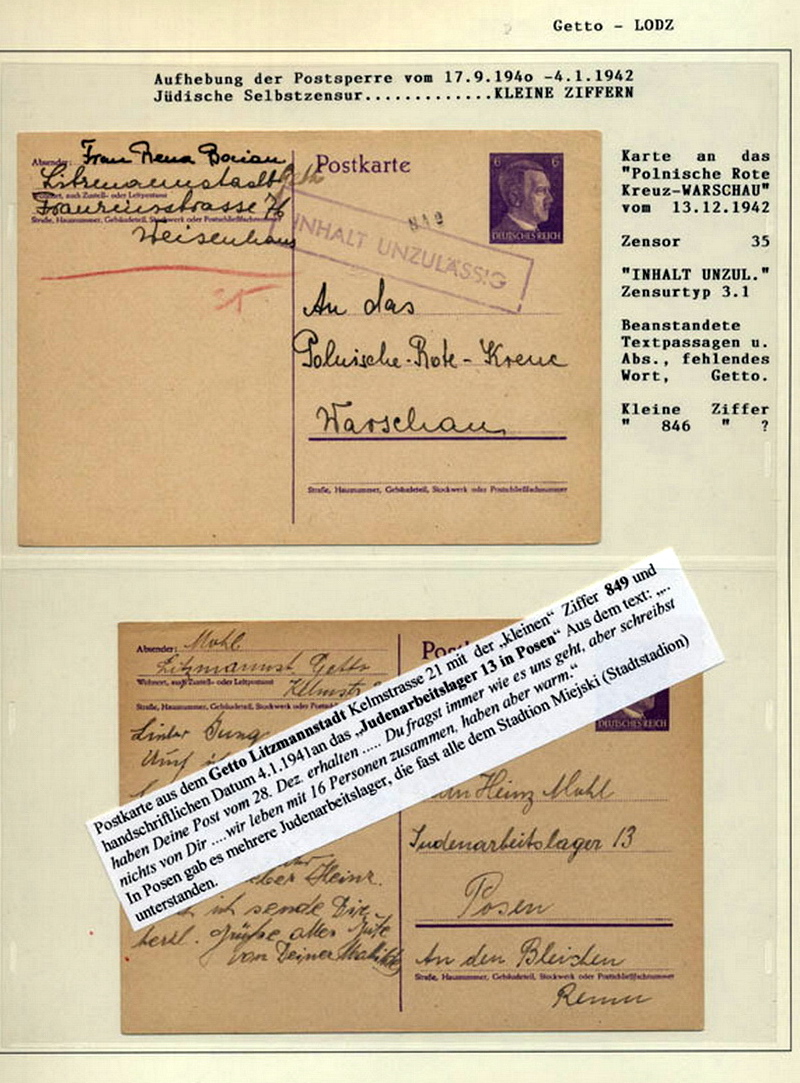 Getto - LODZ
Aufhebung der Postsperre vom 17.9.194o -4.1.1942
Jüdische Selbstzensur.............KLEINE ZIFFERN
Absender: Frau Rena Borian
Litzmannstadt Getto
Wohnort, auch Zustell- oder Leitpostamt
Franzensstrasse 76
Straße, Hausnummer, Gebäudeteil, Stockwerk oder Postschließfachnummer
Weisenhaus
Postkarte
6 6
DEUTSCHES REICH
849
INHALT UNZULÄSSIG
An das
Polnische-Rote-Kreuc
Warschau
Straße, Hausnummer, Gebäudeteil, Stockwerk oder Postschließfachnummer
Karte an das
"Polnische Rote
Kreuz-WARSCHAU"
vom 13.12.1942
Zensor 35
"INHALT UNZUL."
Zensurtyp 3.1
Beanstandete
Textpassagen u.
Abs., fehlendes
Wort, Getto.
Kleine Ziffer
" 846 " ?
Absender: Mohl
Litzmannst. Getto
Wohnort, auch Zustell- oder Leitpostamt
Kelmstr
Straße, Hausnummer, Gebäudeteil, Stockwerk oder
Lieber Jung
Postkarte aus dem Getto Litzmannstadt Kelmstrasse 21 mit der „kleinen“ Ziffer 849 und
handschriftlichen Datum 4.1.1941an das „Judenarbeitslager 13 in Posen“ Aus dem text: „..
haben Deine Post vom 28. Dez. erhalten ..... Du fragst immer wie es uns geht, aber schreibst
nichts von Dir ....wir leben mit 16 Personen zusammen, haben aber warm.“
In Posen gab es mehrere Judenarbeitslager, die fast alle dem Stadtion Miejski (Stadtstadion)
unterstanden.
Heinz.
ich sende Dir
herzl. Grüße alles Gute
von Deiner
DEUTSCHES REICH
Heinz Mohl
Judenarbeitslager 13
Posen
An den Bleichen
Straße, Hausnummer, Gebäudeteil, Stockwerk oder Postschließfachnummer